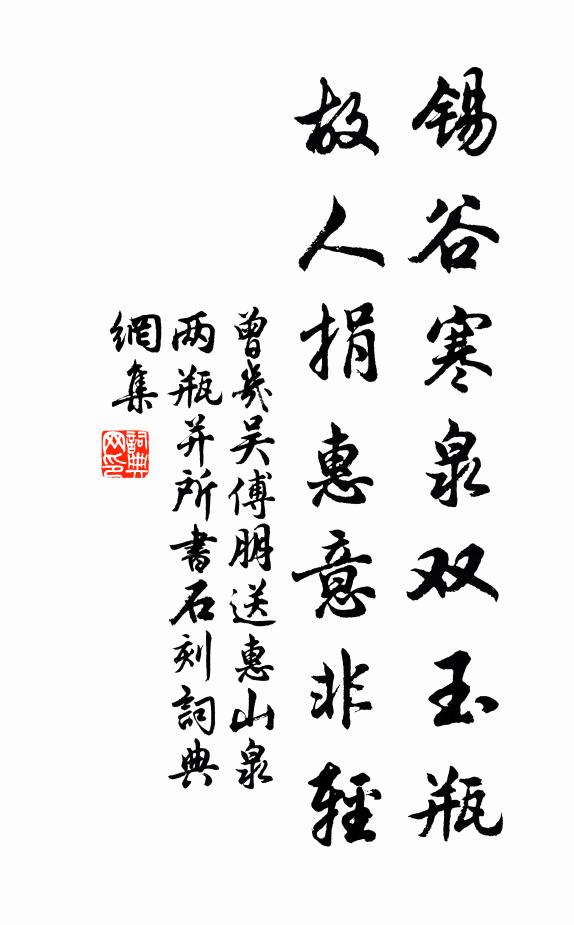 锡谷寒泉双玉瓶
故人捐惠意非轻
曾几吴傅朋送惠山泉
两瓶并所书石刻词典
網集
詞典
网印